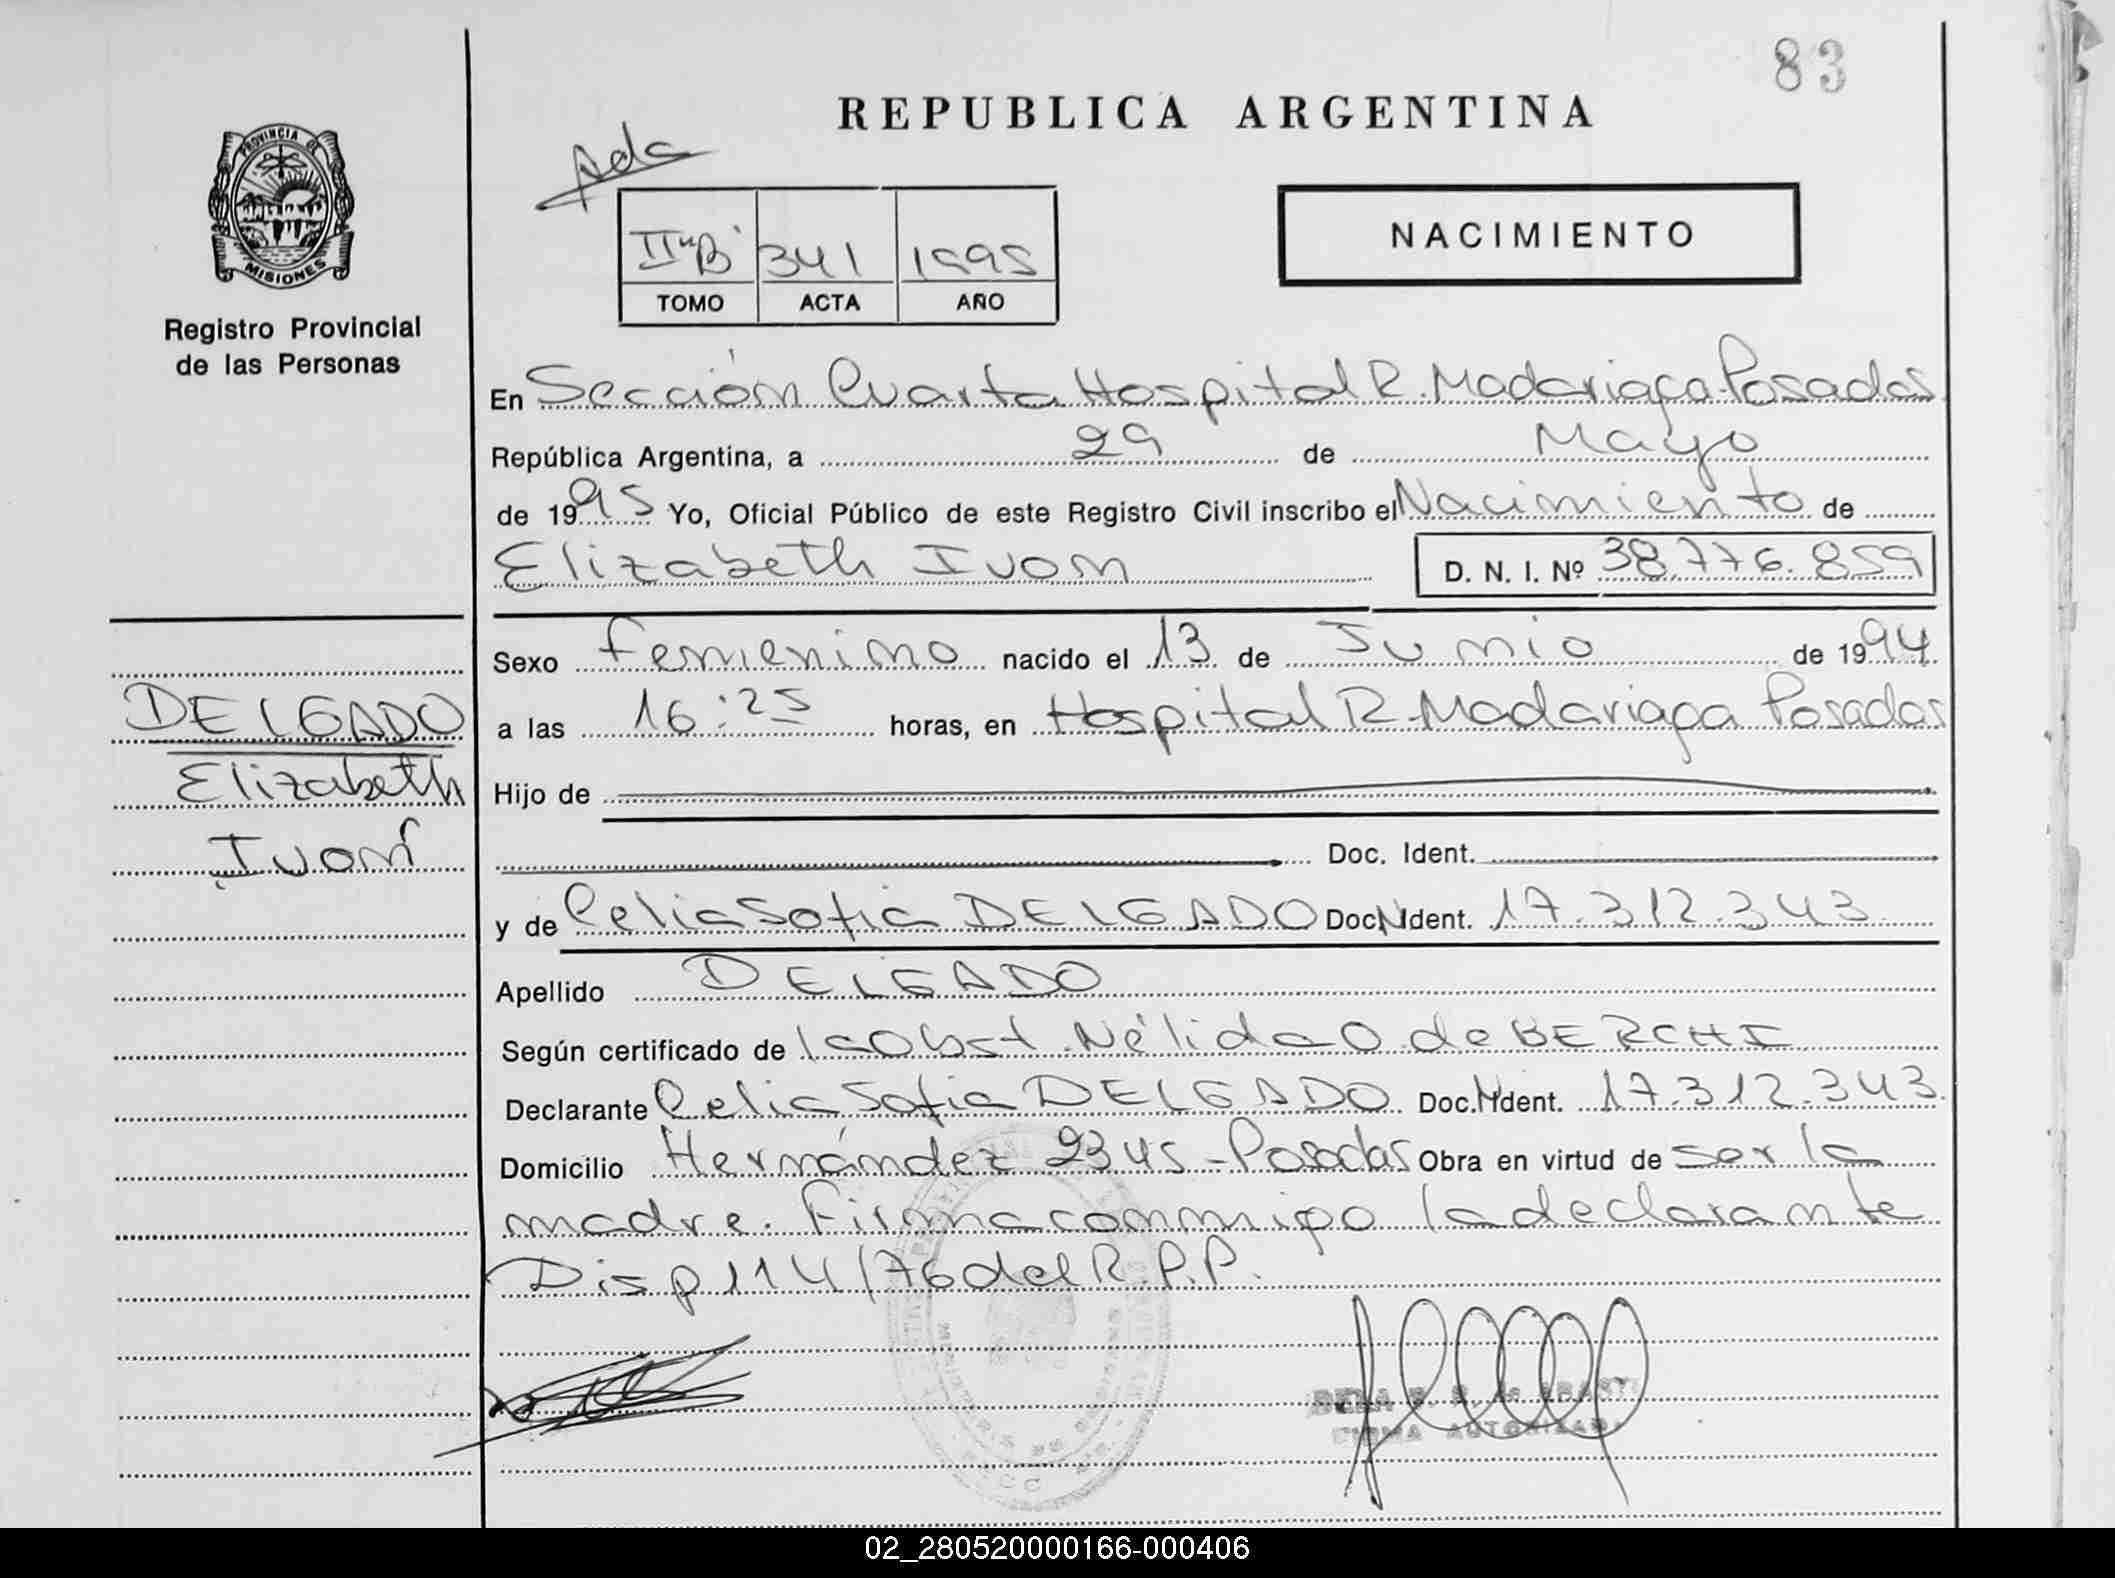 83
REPUBLICA ARGENTINA
PROVINCIA DE
MISIONES
Registro Provincial
de las Personas
II "B" 341 1995
TOMO ACTA AÑO
NACIMIENTO
En Sección Cuarta Hospital R. Madariaga-Posadas
República Argentina, a 29 de Mayo
de 1995 Yo, Oficial Público de este Registro Civil inscribo el Nacimiento de
Elizabeth Ivon D. N. I. Nº 38.776.859
Sexo femenino nacido el 13 de Junio de 1994
a las 16:25 horas, en Hospital R. Madariaga Posadas
Hijo de
Doc. Ident.
y de Celia Sofia DELGADO Doc. N Ident. 17.312.343
Apellido DELGADO
Según certificado de la Obst. Nélida O de BERCHI
Declarante Celia Sofia DELGADO Doc. N Ident. 17.312.343.
Domicilio Hernández 2345-Posadas Obra en virtud de ser la
madre. Firma conmigo la declarante
Disp 114/76 del R.P.P.
DELGADO
Elizabeth
Ivon
FIRMA AUTORIZADA
02_280520000166-000406